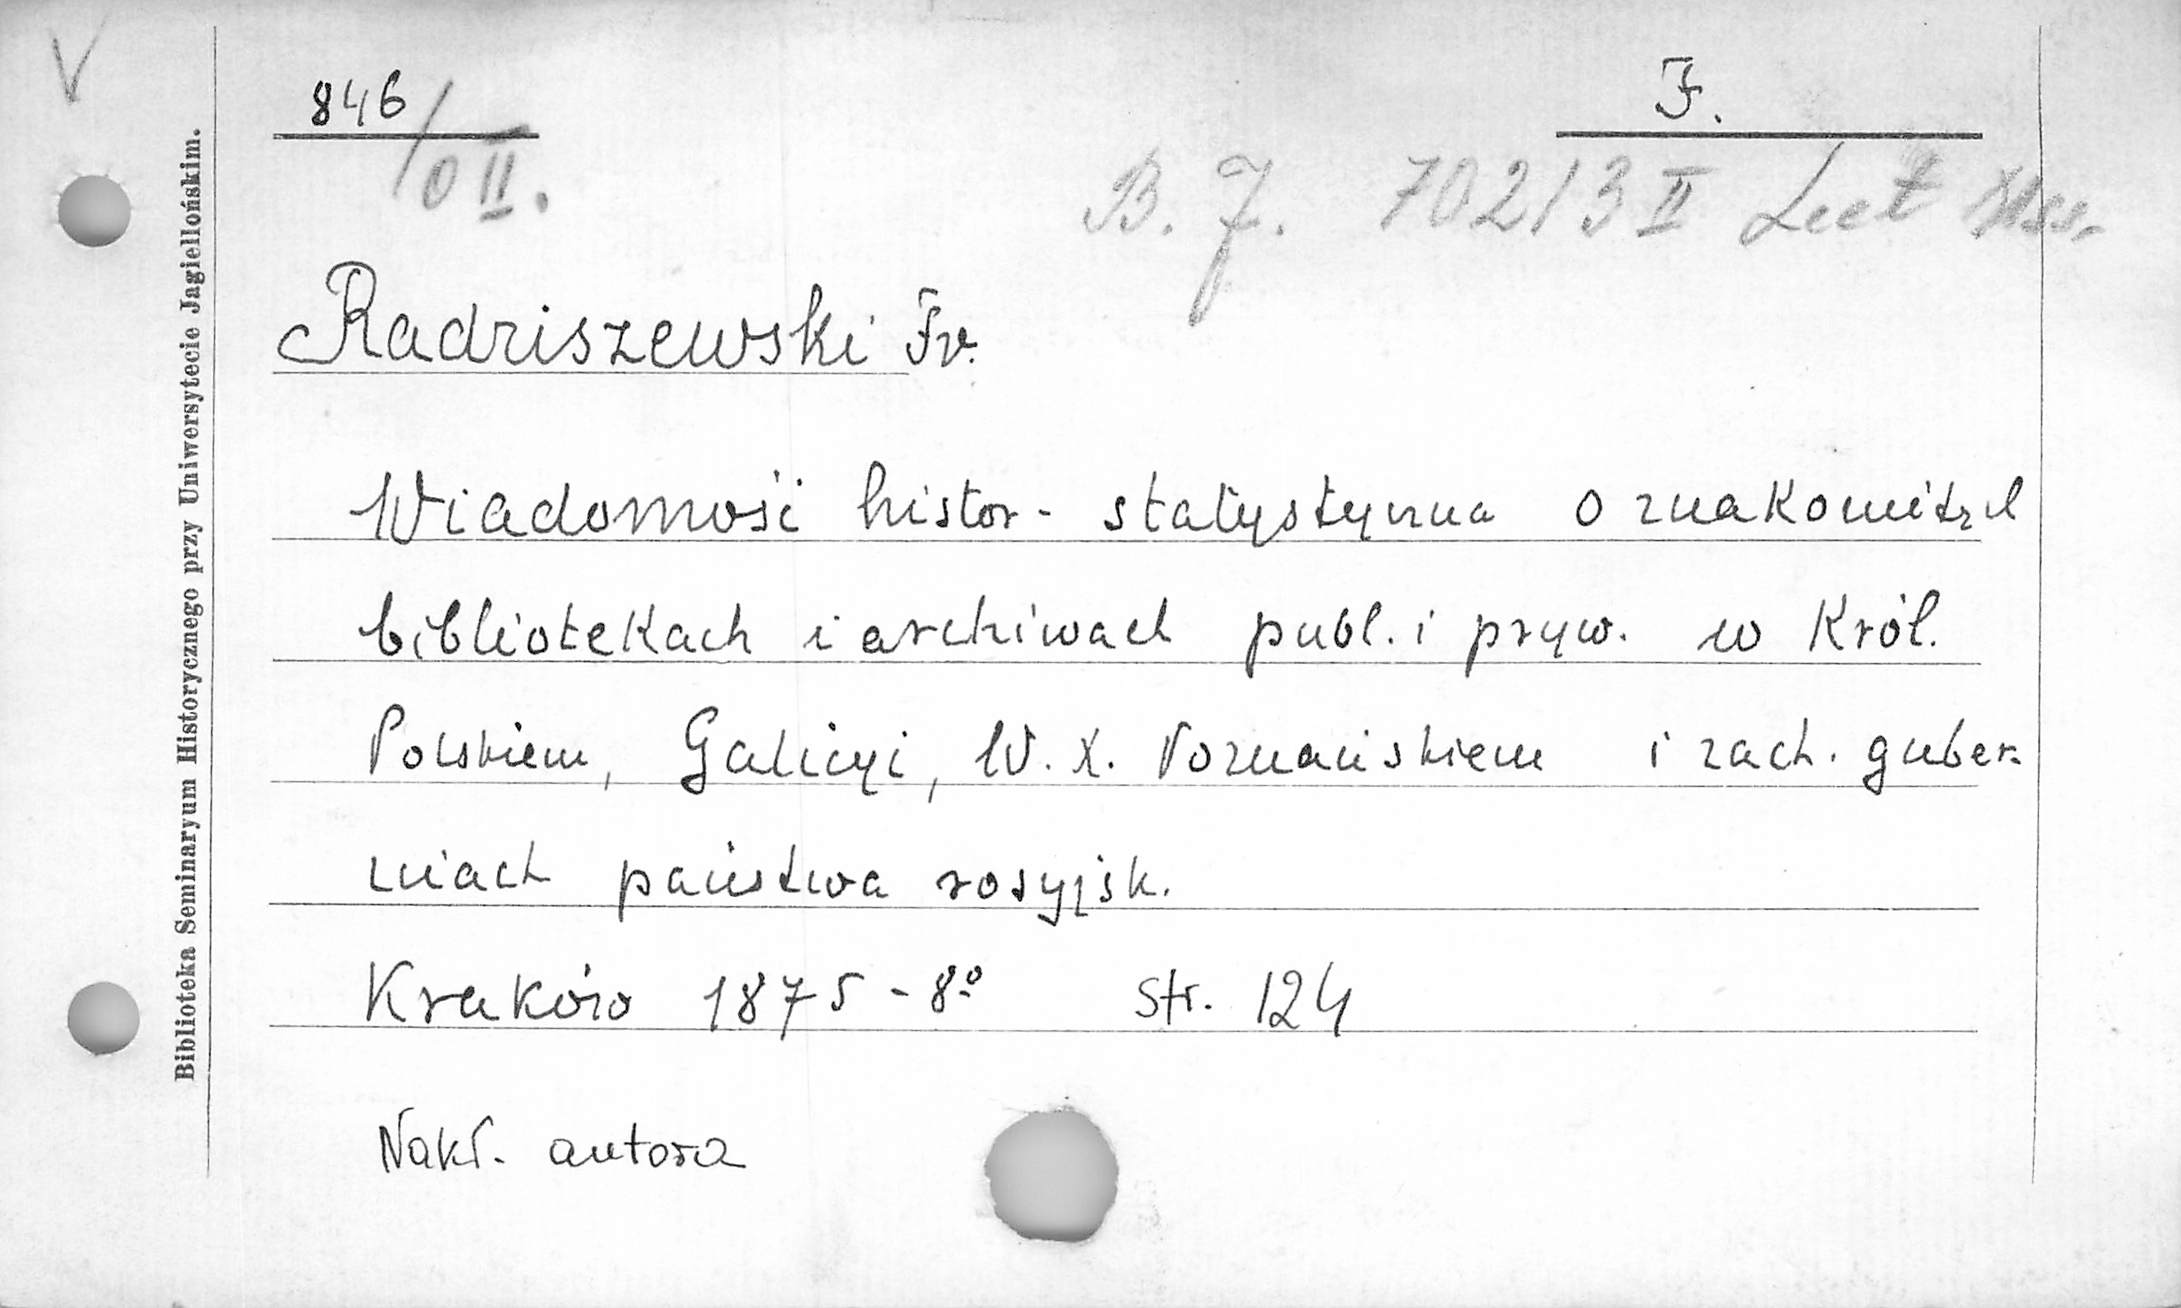 V
846/OII.
F.
B. J. 70213 II Lect Mss.
Radziszewski Fr.
Wiadomość histor- statystyczna o znakomitych
bibliotekach i archiwach publ. i pryw. w Król.
Polskiem, Galicyi, W. X. Poznańskiem i zach. guber-
niach państwa rosyjsk.
Kraków 1875 - 8º str. 124
Nakł. autora
Biblioteka Seminaryum Historycznego przy Uniwersytecie Jagiellońskim.